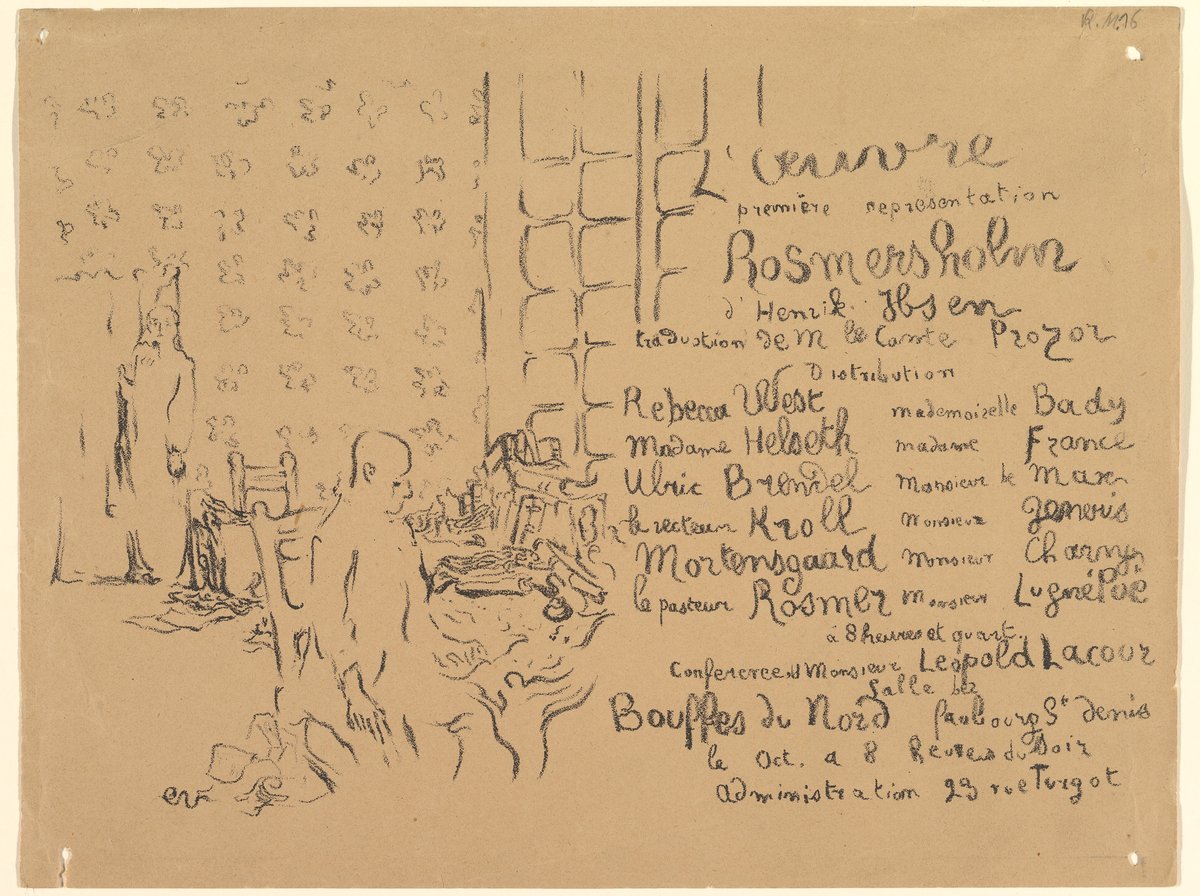 R.M.16
L'œuvre
première representation
Rosmersholm
d'Henrik Ibsen
traduction de M le Comte Prozor
Distribution
Rebecca West mademoiselle Bady
Madame Helseth madame France
Ulric Brendel Monsieur de Max
le recteur Kroll Monsieur
Mortensgaard Monsieur Charny
le pasteur Rosmer Monsieur Lugné Poë
à 8 heures et quart.
Conference, Monsieur Leopold Lacour
Salle des
Bouffes du Nord faubourg St denis
le Oct. a 8 heures du Soir
administration 23 rue Turgot
ev